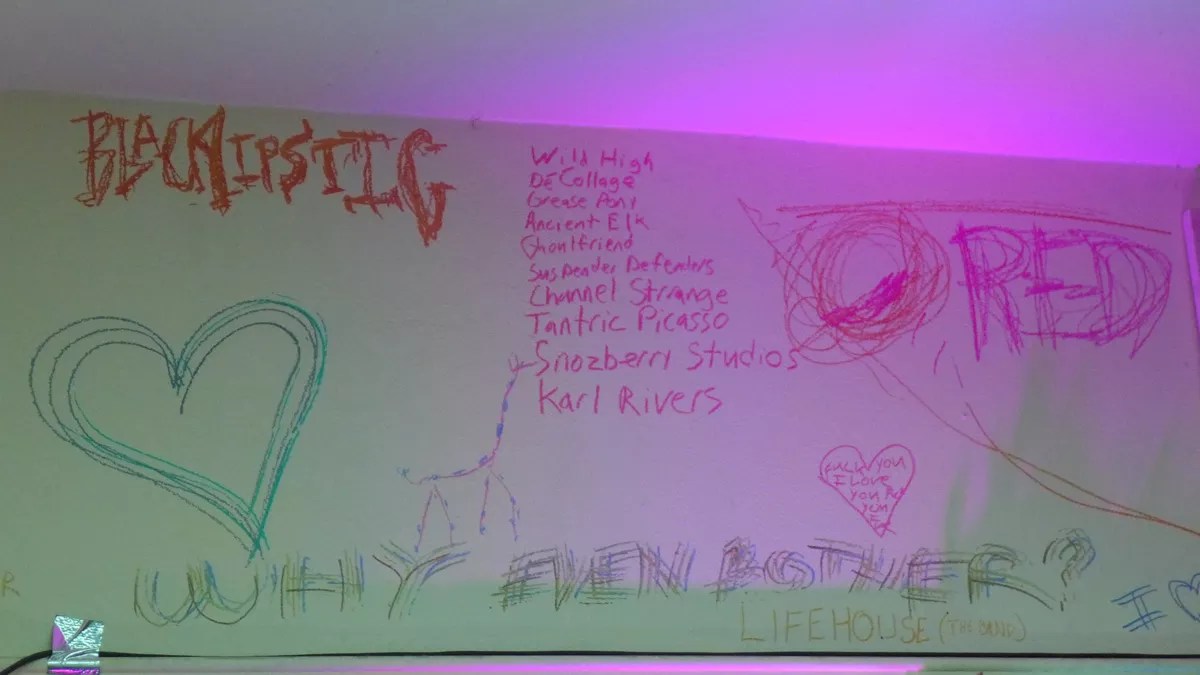 BLACKLIPSTIC
Wild High
DéCollage
Grease Pony
Ancient Elk
Ghoulfriend
Suspender Defenders
Channel Strrange
Tantric Picasso
Snozberry Studios
Karl Rivers
RED
FUCK YOU
I LOVE
YOU
WHY EVEN BOTHER?
LIFEHOUSE (THE BAND)
I
R